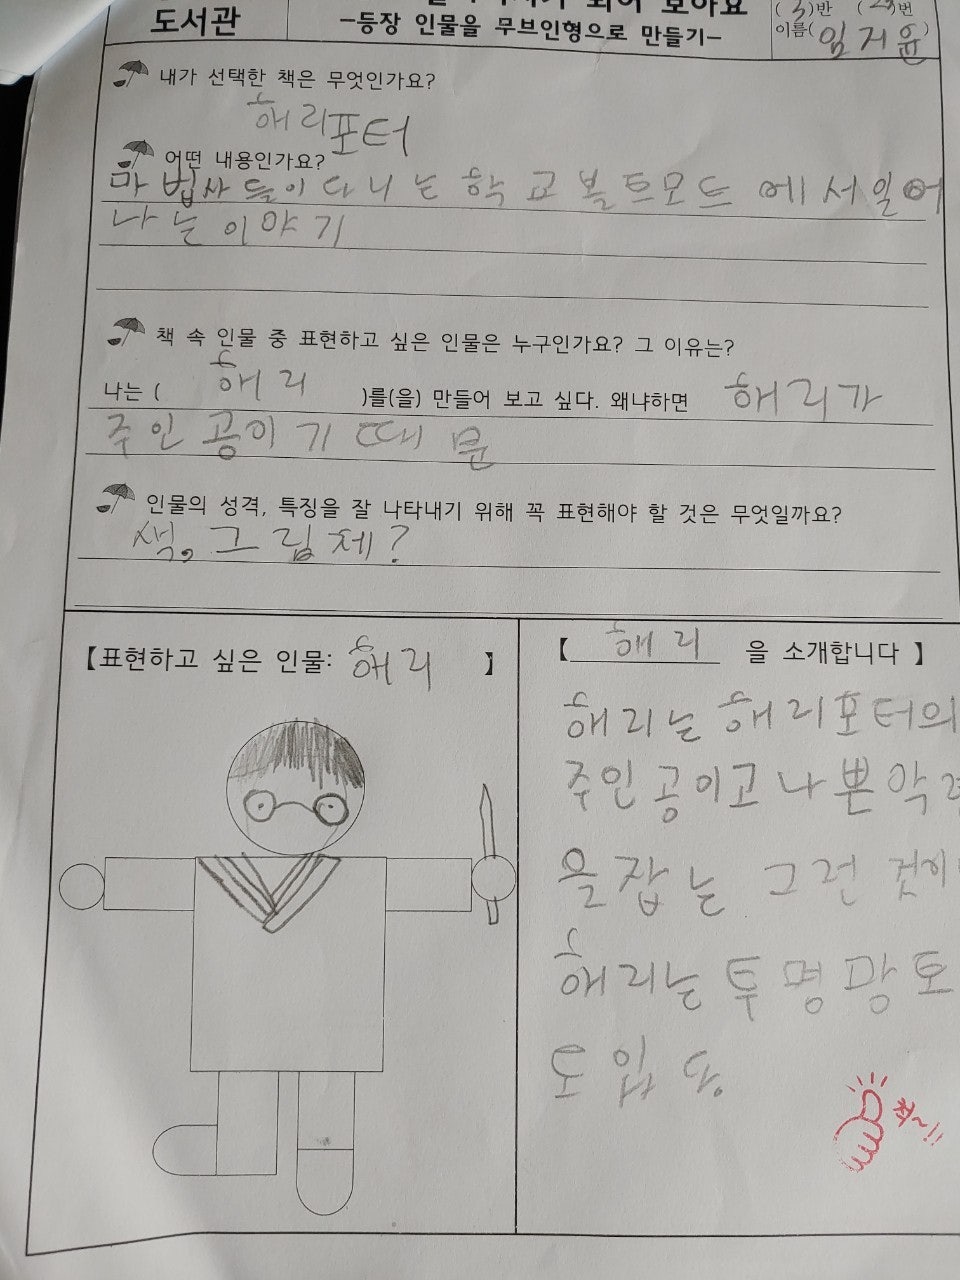 도서관
되어 보아요
-등장 인물을 무브인형으로 만들기-
( 3 )반 ( 번
이름( 임지윤 )
내가 선택한 책은 무엇인가요?
해리포터
어떤 내용인가요?
마법사들이 다니는 학교 볼트모드에서 일어
나는 이야기
책 속 인물 중 표현하고 싶은 인물은 누구인가요? 그 이유는?
나는 ( 해리 )를(을) 만들어 보고 싶다. 왜냐하면 해리가
주인공이기 때문
인물의 성격, 특징을 잘 나타내기 위해 꼭 표현해야 할 것은 무엇일까요?
색, 그림체?
【표현하고 싶은 인물: 해리 】
【 해리 을 소개합니다 】
해리는 해리포터의
주인공이고 나쁜
을 잡는 그런
해리는 투명망토
도 입
척~!!